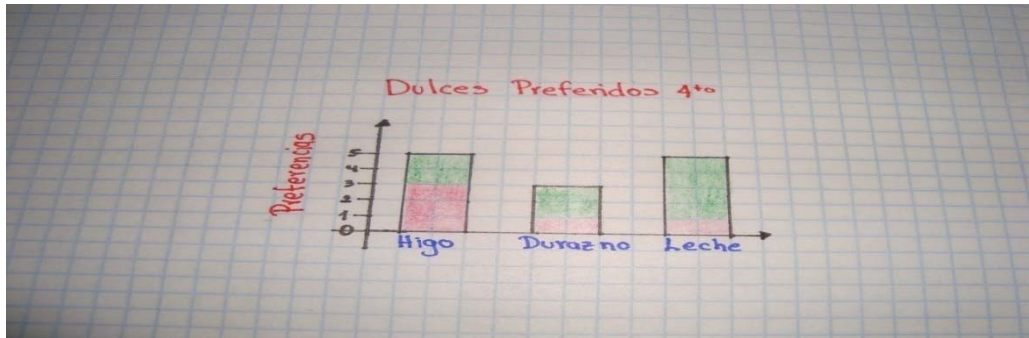 Dulces Preferidos 4to
Preferencias
5
4
3
2
1
0
Higo Durazno Leche